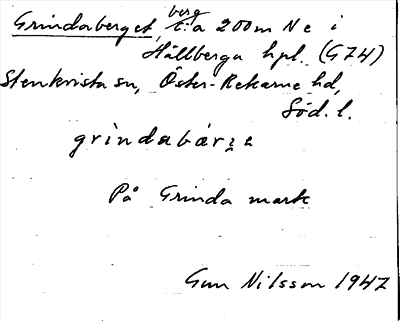 Grindaberget, berg c:a 200m N e i
Hällberga hpl. (GJH)
Stenkvista sn, Öster-Rekarne hd,
Söd. l.
grìndabárʒe
På Grinda mark
Gun Nilsson 1947